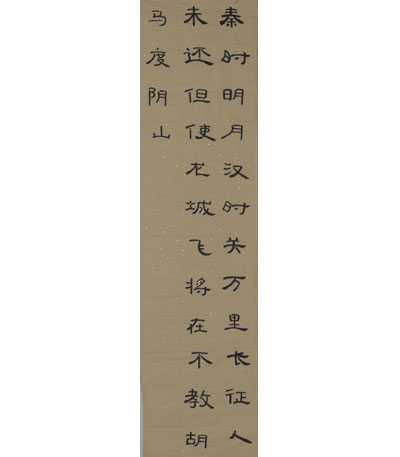 秦时明月汉时关万里长征人
未还但使龙城飞将在不教胡
马度阴山